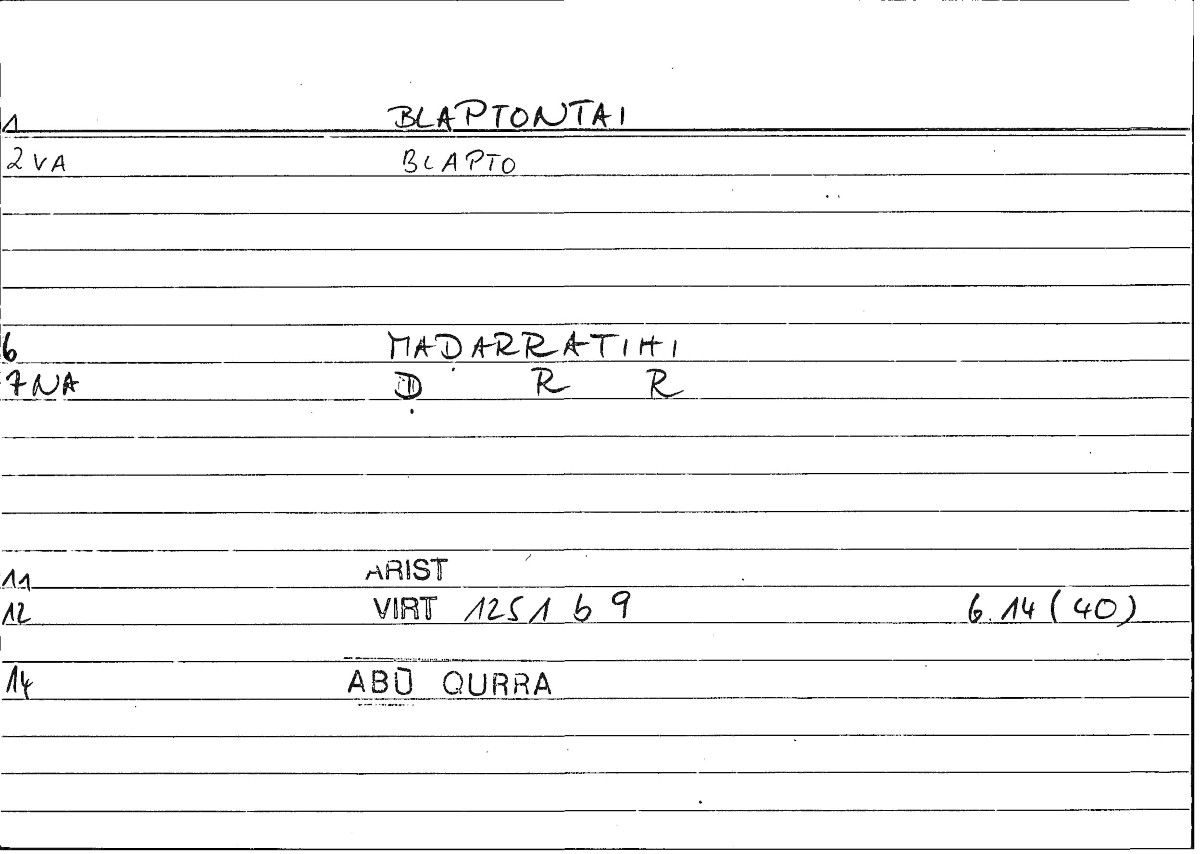 1 BLAPTONTAI
2 VA BLAPTO
6 MAḌARRATIHI
7 NA Ḍ R R
11 ARIST
12 VIRT 1251 b 9 6.14 (40)
14 ABŪ QURRA